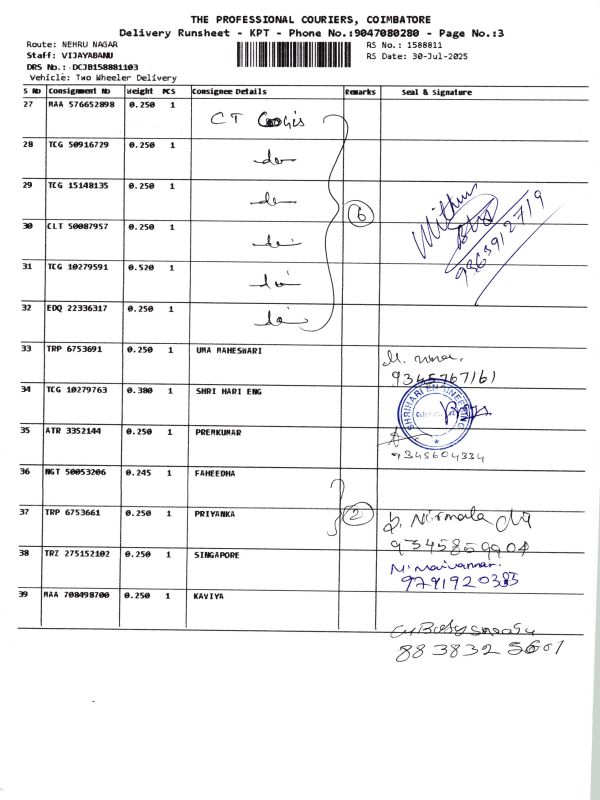 THE PROFESSIONAL COURIERS, COIMBATORE
Delivery Runsheet - KPT - Phone No.:9047080280 - Page No.:3
Route: NEHRU NAGAR
RS No.: 1588811
Staff: VIJAYABANU
RS Date: 30-Jul-2025
DRS No.: DCJB158881103
Vehicle: Two Wheeler Delivery
S No Consignment No Weight PCS Consignee Details Remarks Seal & Signature
27 MAA 576652898 0.250 1 CT
28 TCG 50916729 0.250 1 do
29 TCG 15148135 0.250 1 do
6 Mithun
30 CLT 50087957 0.250 1 do
9363912719
31 TCG 10279591 0.520 1 do
32 EDQ 22336317 0.250 1 do
33 TRP 6753691 0.250 1 UMA MAHESWARI M. Uma.
9345767161
34 TCG 10279763 0.380 1 SHRI HARI ENG SHRIHARI ENGINEERING
35 ATR 3352144 0.250 1 PREMKUMAR
9345604334
36 NGT 50053206 0.245 1 FAHEEDHA
37 TRP 6753661 0.250 1 PRIYANKA 2 Nirmala
9345859904
38 TRZ 275152102 0.250 1 SINGAPORE
9791920383
39 MAA 708498700 0.250 1 KAVIYA
88 3832 5601